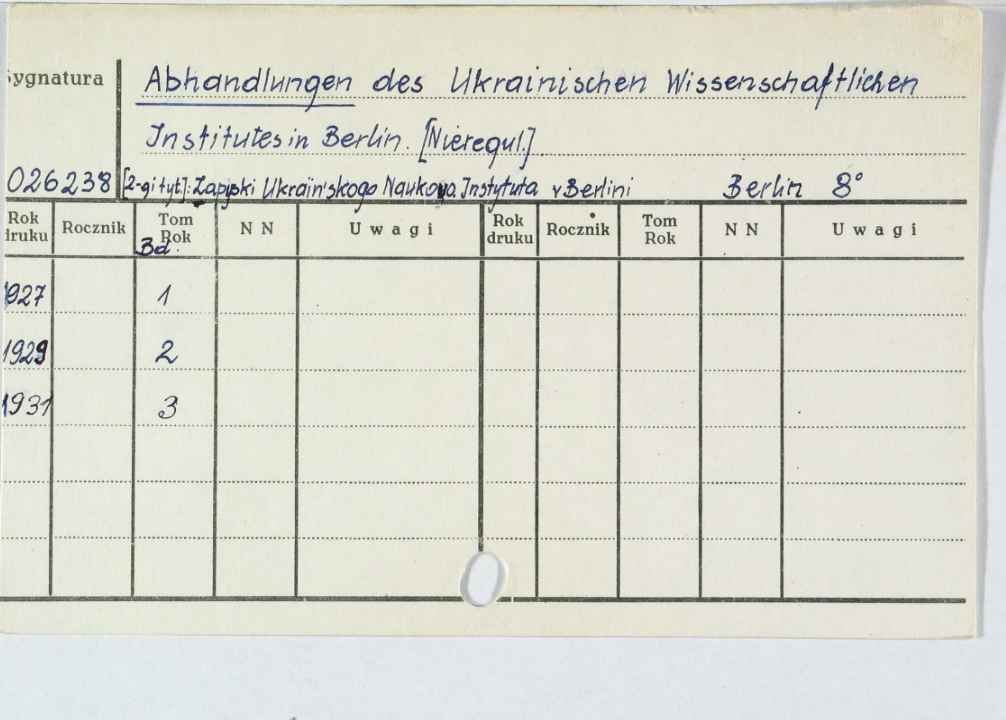 Sygnatura
Abhandlungen des Ukrainischen Wissenschaftlichen
Institutes in Berlin. [Nieregul.]
026238 [2-gi tyt]: Zapyski Ukraïns'kogo Naukovo. Instytuta v Berlini Berlin 8°
Rok druku Rocznik Tom Rok Bd. N N Uwagi Rok druku Rocznik Tom Rok N N Uwagi
1927 1
1929 2
1931 3